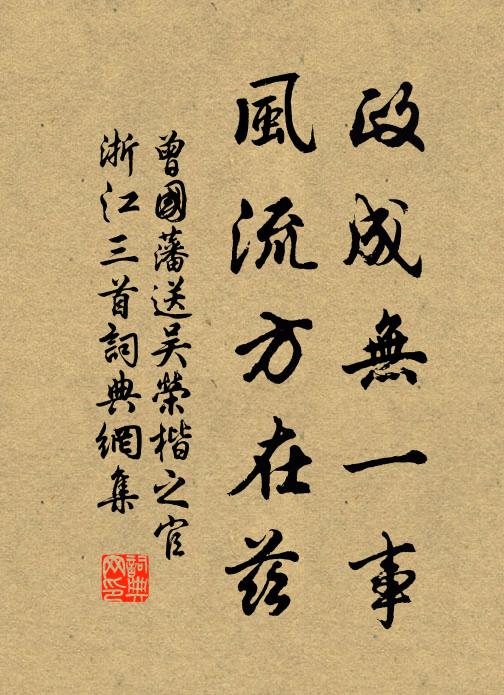 政成無一事
風流方在茲
曾國藩送吴榮楷之官
浙江三首詞典網集
詞典
网印